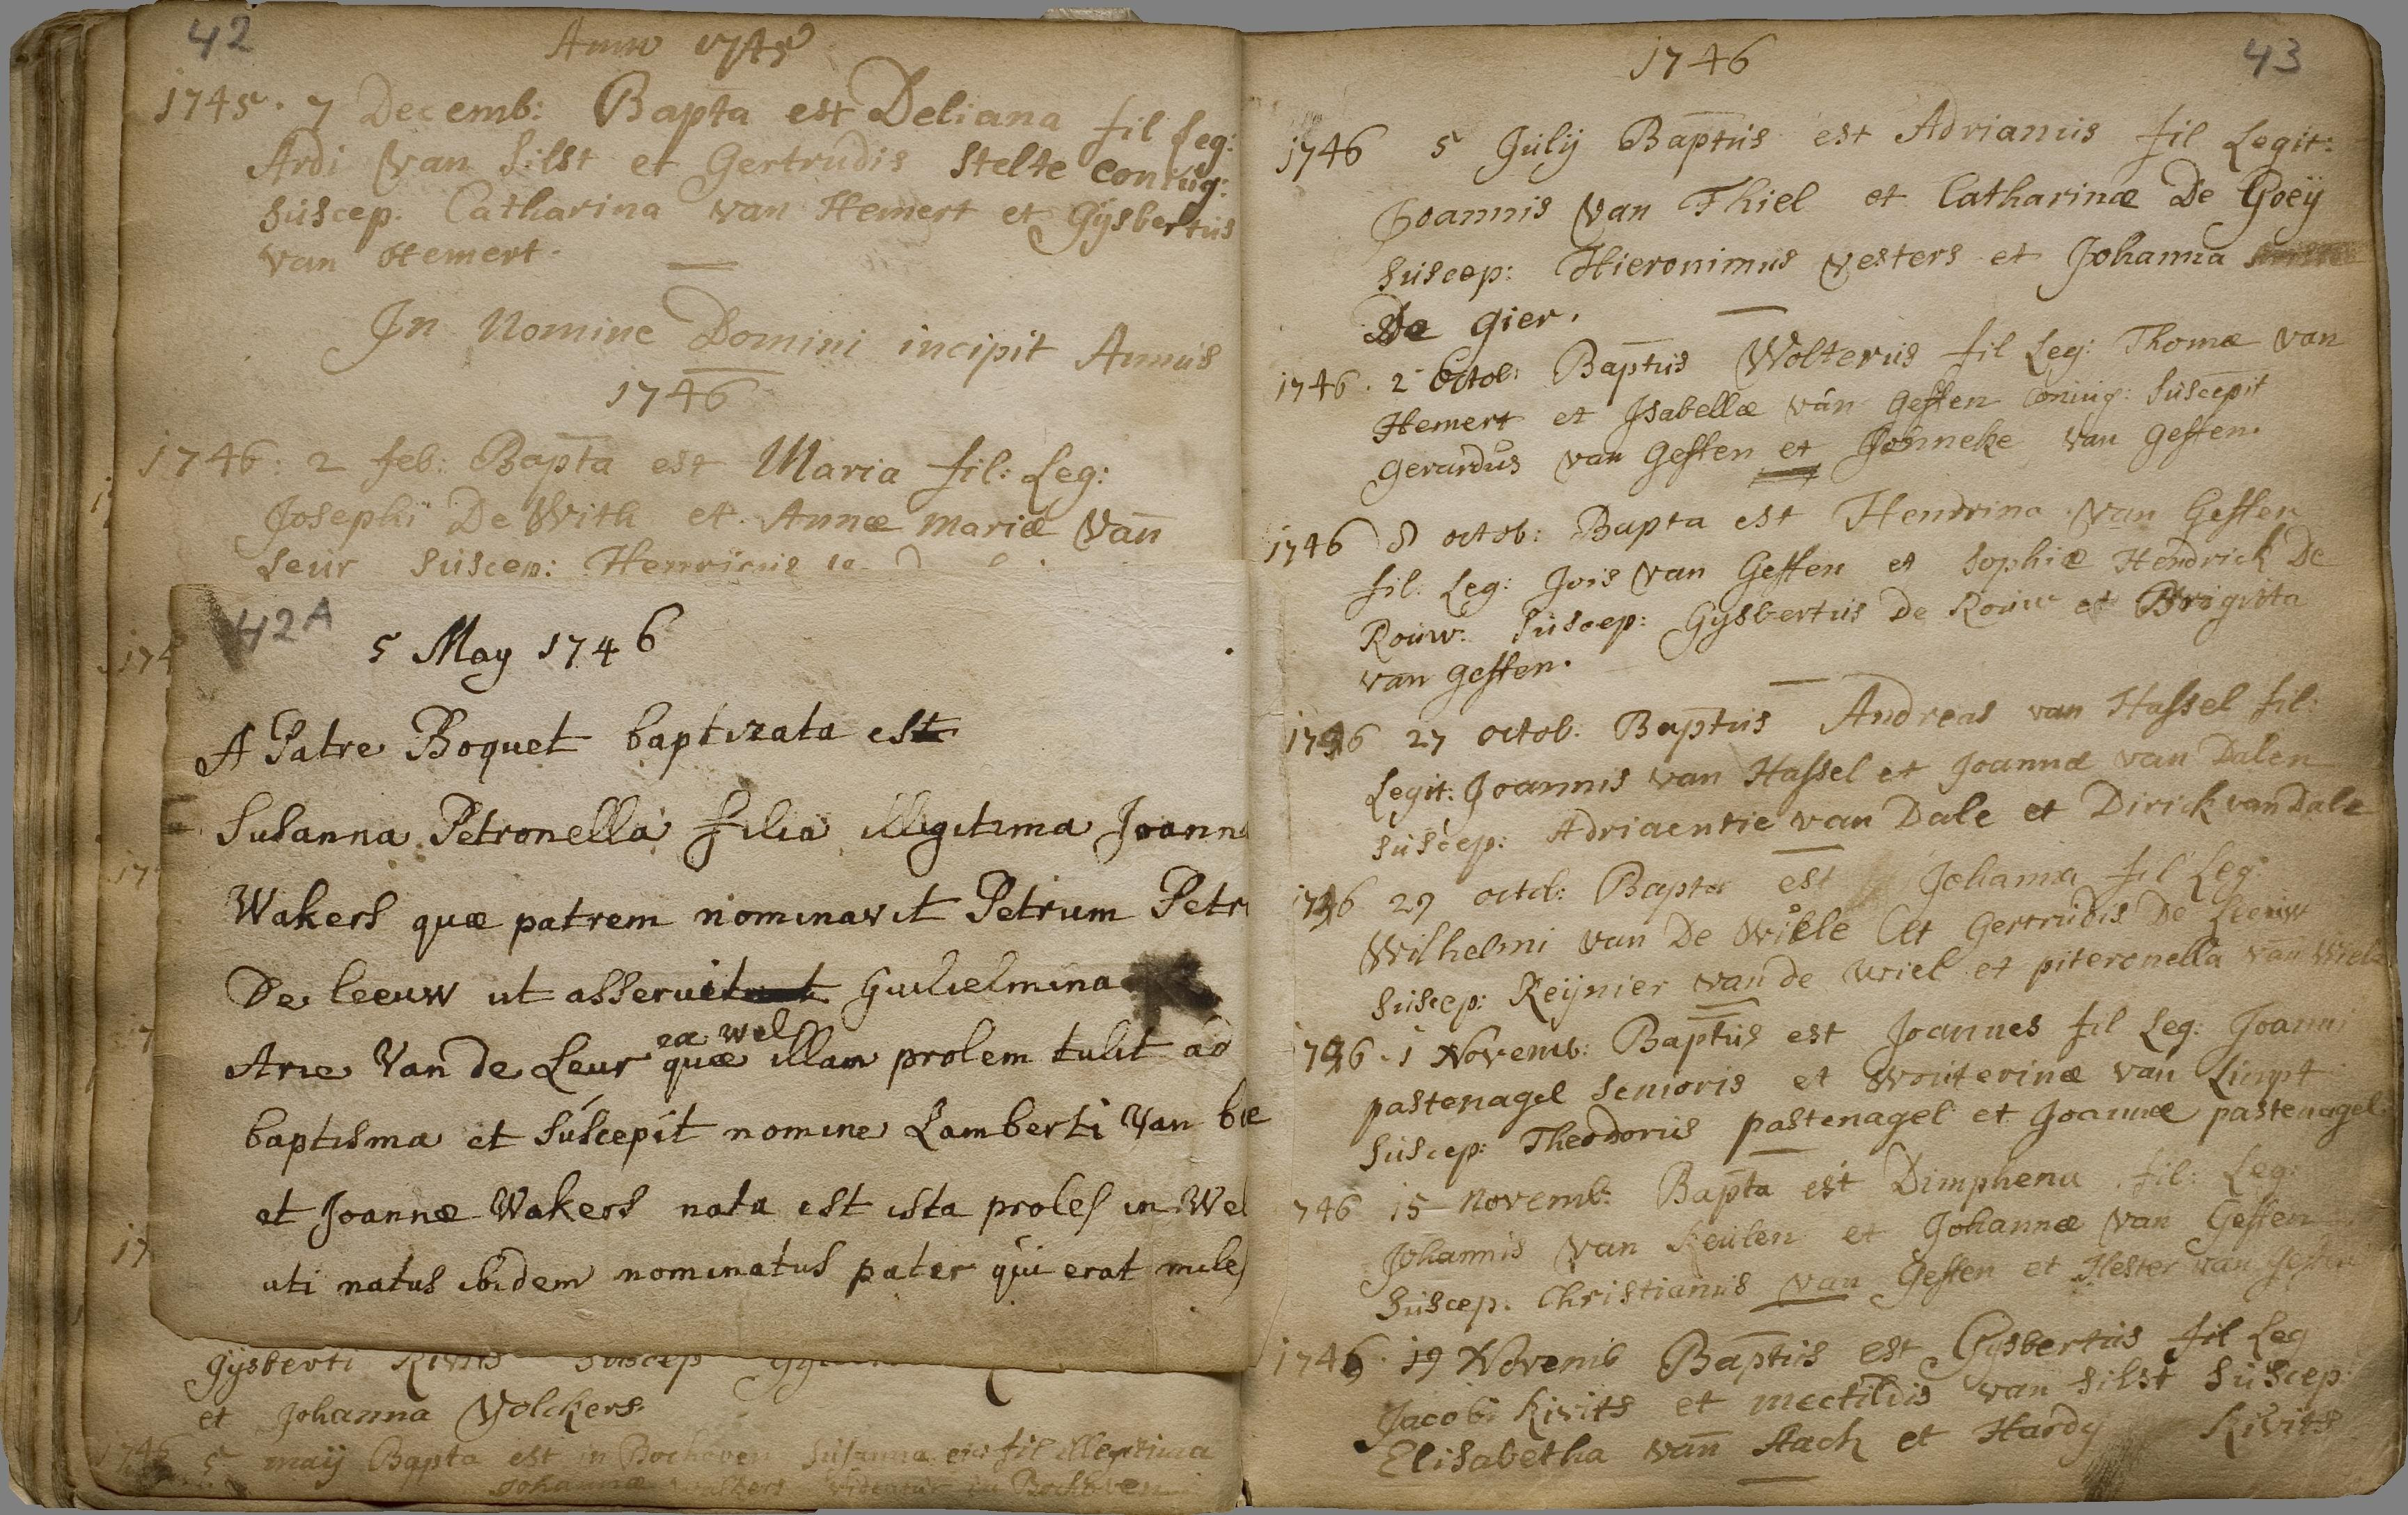 42
Anno 1745
1745. 7 Decemb: Bapta est Deliana fil Leg:
Ardi van Silst et Gertrudis Stelte coniug:
suscep. Catharina van Hemert et Gijsbertus
van Hemert.
In Nomine Domini incipit Annus
1746
1746: 2 feb: Bapta est Maria fil: Leg:
Josephi De With et Annæ Mariæ Van
Leur Suscep: Henricus
42A
5 May 1746
A Patre Boquet baptizata est
Susanna Petronella filia illigitima Joann
Wakers quæ patrem nominavit Petrum Petr
De leeuw ut asseruit Guilielmina
Arie Van de Leur quæ illam prolem tulit ad
ea wel
baptisma et suscepit nomine Lamberti Van be
et Joannæ Wakers nata est ista proles in We
uti natus ibidem nominatus pater qui erat miles
Gijsberti Kivits suscep
et Johanna Volckers
1746 5 maij Bapta est in Bochoven Susanna fil illegitima
Johannæ walkers videatur in Bochoven
1746
43
1746 5 Julij Baptus est Adrianus fil Legit:
Joannis van Thiel et Catharinæ De Goeij
Suscep: Hieronimus vesters et Johanna
De gier.
1746. 2 Octob: Baptus Wolterus fil Leg: Thomæ van
Hemert et Isabellæ van gessen Coniug: Suscepit
Gerardus van Gessen et Jenneke van gessen.
1746 8 octob: Bapta est Hendrina van Gessen
fil. Leg: Jois van Gessen et Sophiæ Hendrick De
Rouw. Suscep: Gysbertus De Rouw et Brigitta
van gessen.
1746 27 octob. Baptus Andreas van Hassel fil:
Legit: Joannis van Hassel et Joannæ van Dalen
Suscep: Adriaentie van Dale et Dirick van Dale
1746 29 octob: Bapta est Johanna fil Leg:
Wilhelmi van De Wiele et Gertrudis De Leeuw
Suscep: Reijnier van de wiel et piteronella van Wiele
1746. 1 Novemb: Baptus est Joannes fil Leg: Joanni
pastenagel Senioris et Wouterinæ van Limpt
Suscep: Theodorus pastenagel et Joannæ pastenagel.
746 15 novemb: Bapta est Dimphena fil: Leg:
Johannis van Keulen et Johannæ van Gessen
Suscep. Christianus van Gessen et Hester van gessen
1746. 19 Novemb Baptus est Gysbertus fil Leg
Jacobi Kivits et mectildis van Silst Suscep:
Elisabetha van Aach et Hardy Kivits